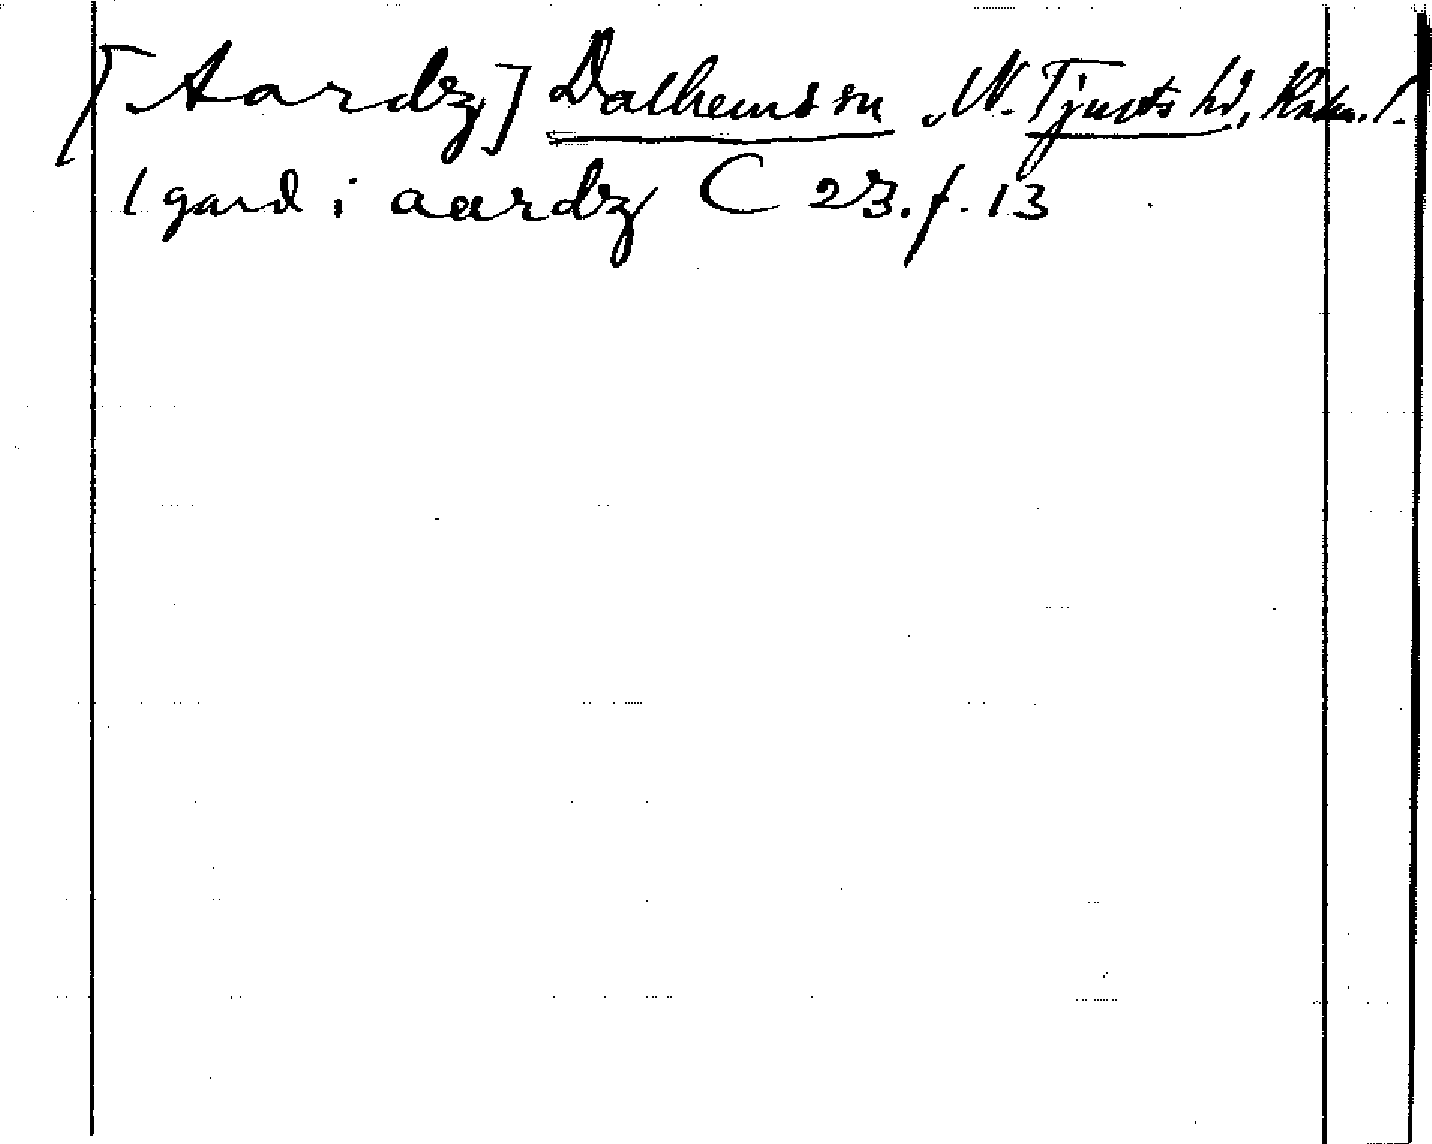 [Aardz] Dalhems sn, N. Tjusts hd, Kalm. l.
1 gard i aardz C 23. f. 13